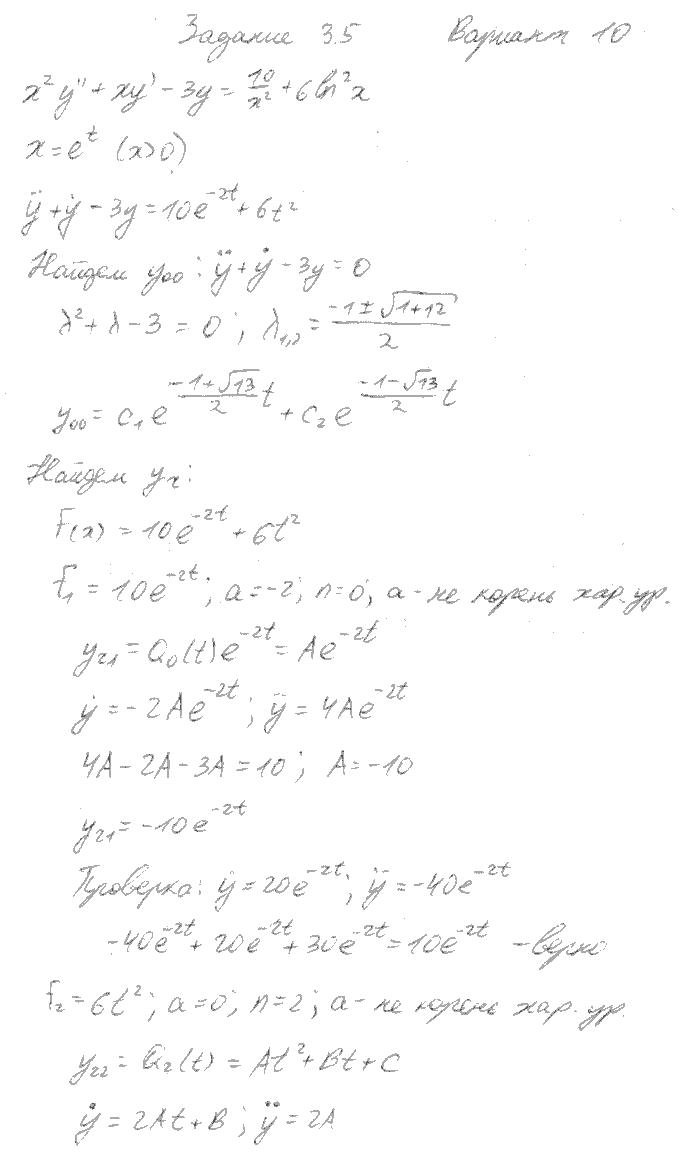 Задание 3.5 Вариант 10
x² y'' + xy' - 3y = 10/x² + 6 ln² x
x = e^t (x>0)
ÿ + ẏ - 3y = 10e^(-2t) + 6t²
Найдем y₀₀ : ÿ + ẏ - 3y = 0
λ² + λ - 3 = 0 ; λ₁,₂ = (-1 ± √(1+12))/2
y₀₀ = C₁ e^((-1+√13)/2 t) + C₂ e^((-1-√13)/2 t)
Найдем yг :
F(x) = 10e^(-2t) + 6t²
f₁ = 10e^(-2t) ; a = -2 ; n = 0 ; a - не корень хар. ур.
yг₁ = Q₀(t)e^(-2t) = Ae^(-2t)
ẏ = -2Ae^(-2t) ; ÿ = 4Ae^(-2t)
4A - 2A - 3A = 10 ; A = -10
yг₁ = -10e^(-2t)
Проверка: ẏ = 20e^(-2t) ; ÿ = -40e^(-2t)
-40e^(-2t) + 20e^(-2t) + 30e^(-2t) = 10e^(-2t) - верно
f₂ = 6t² ; a = 0 ; n = 2 ; a - не корень хар. ур.
yг₂ = Q₂(t) = At² + Bt + C
ẏ = 2At + B ; ÿ = 2A